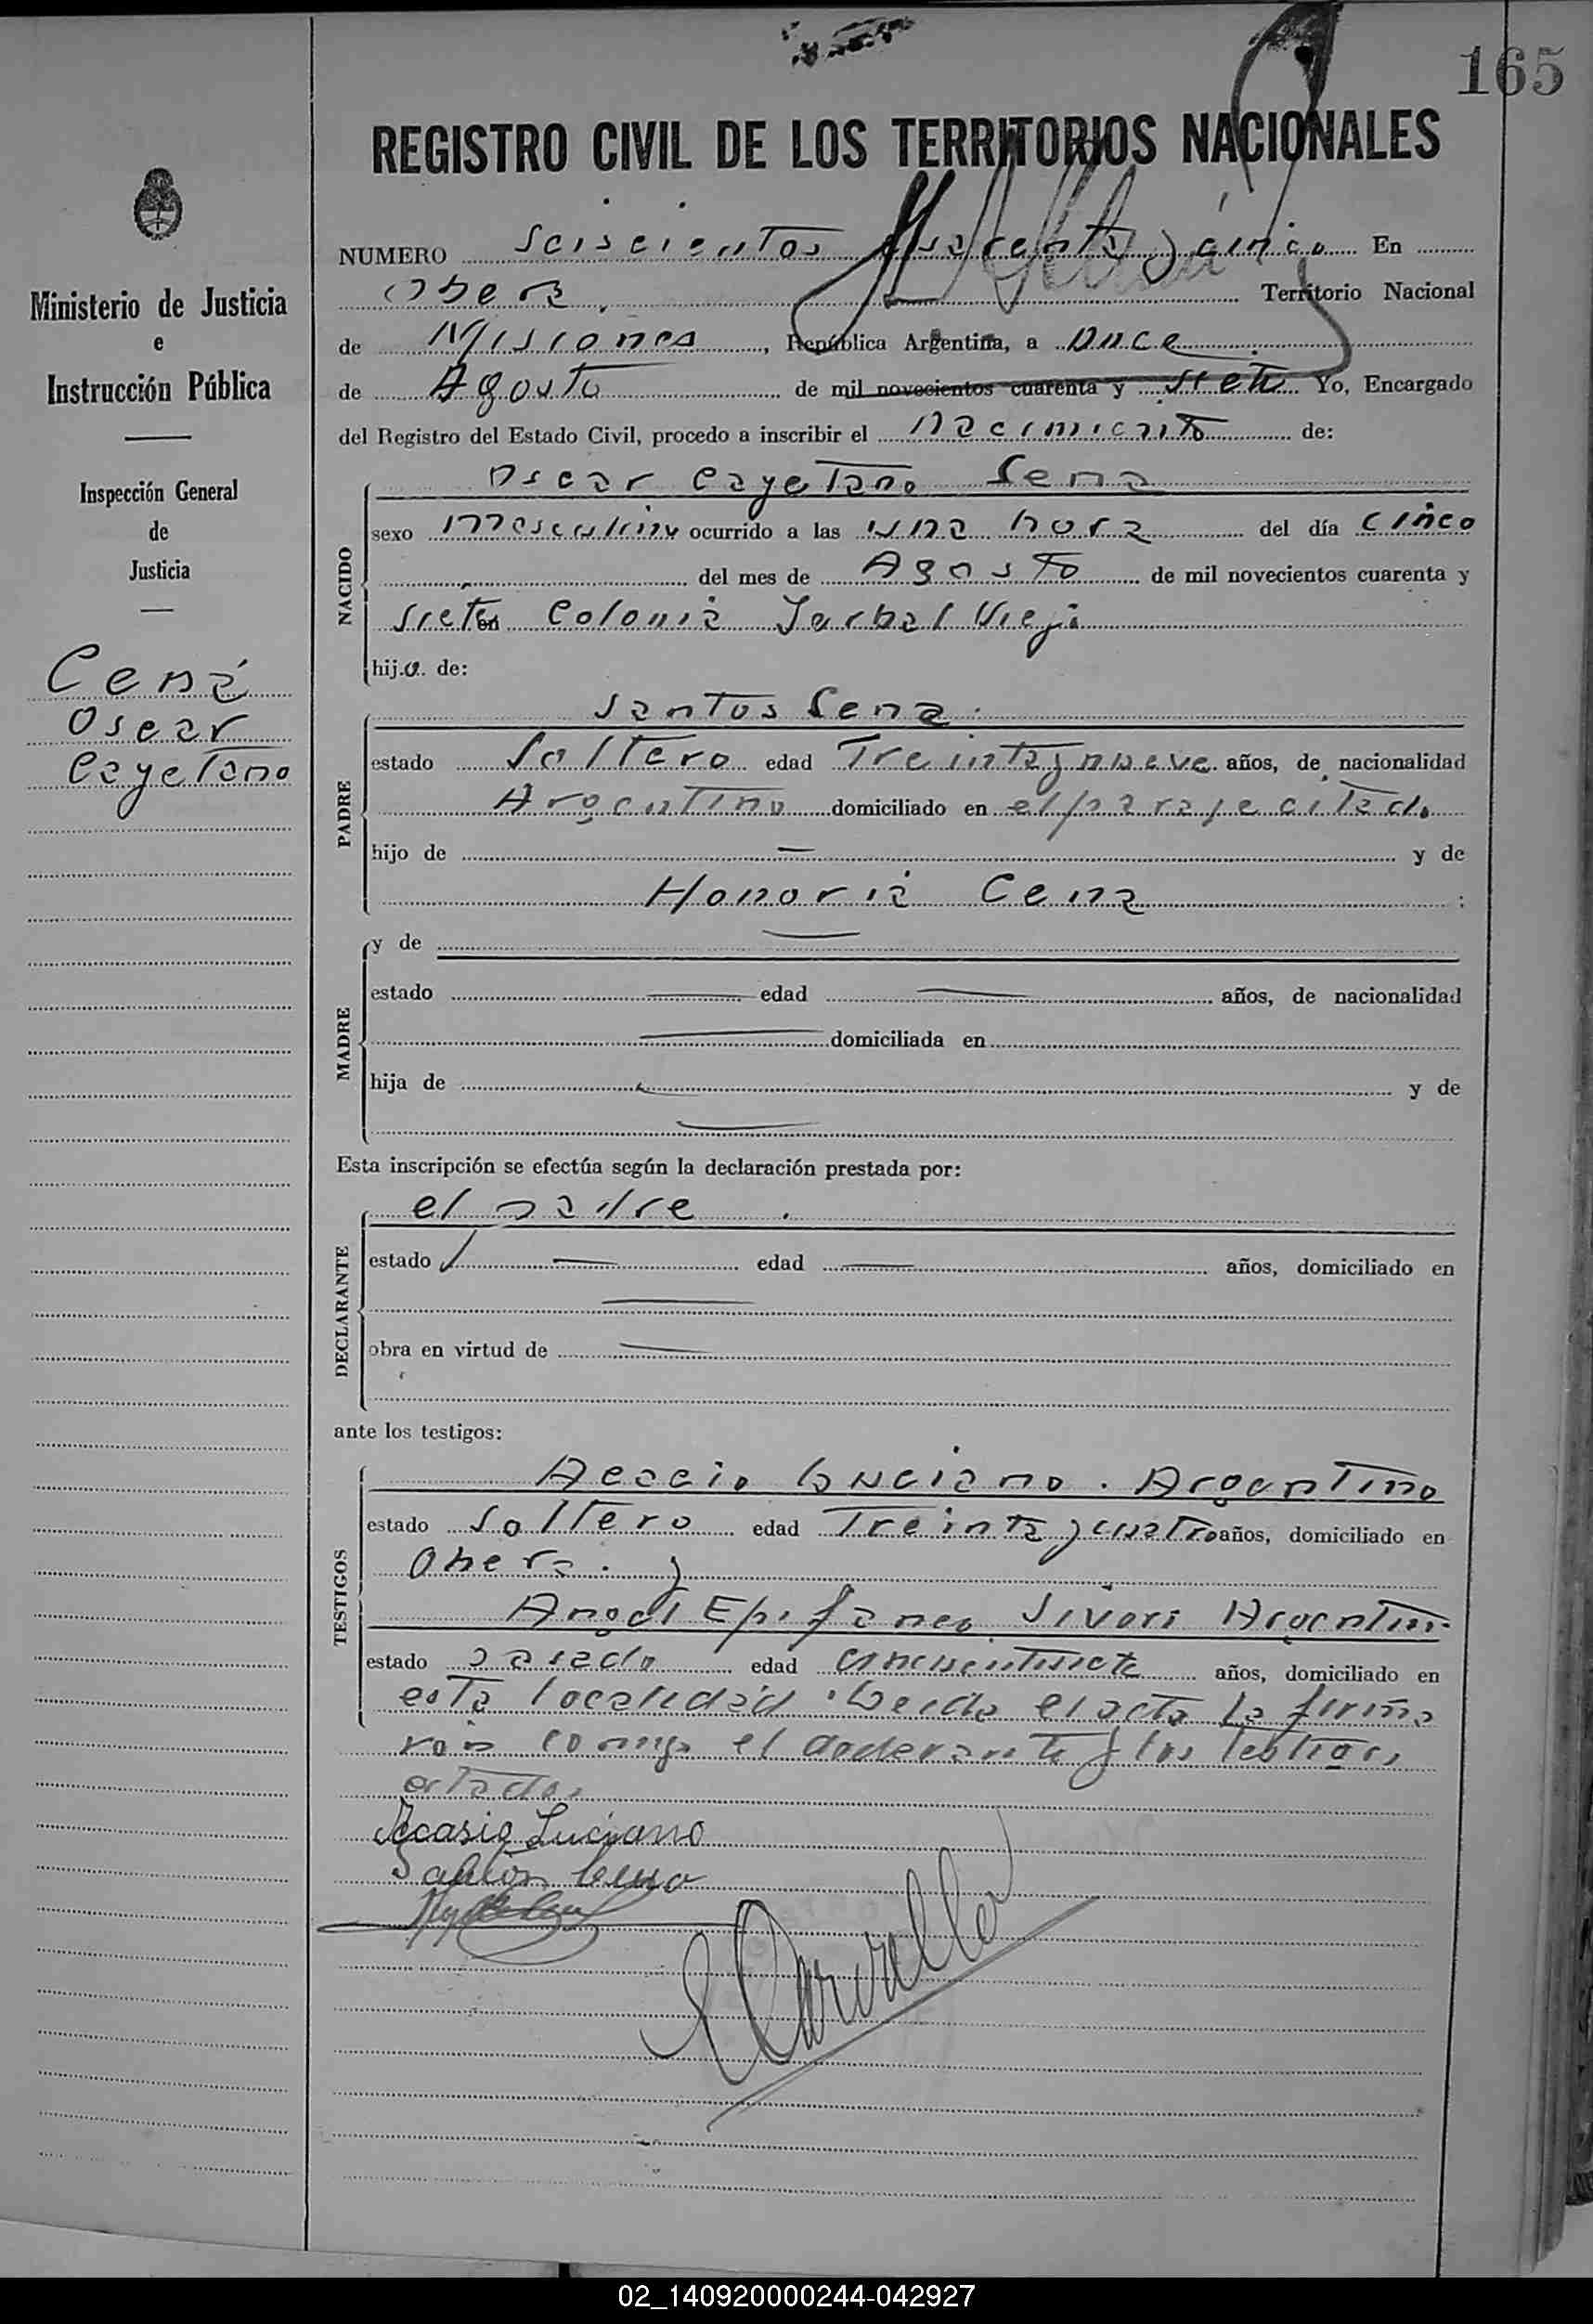 165
REGISTRO CIVIL DE LOS TERRITORIOS NACIONALES
Ministerio de Justicia
e
Instrucción Pública
Inspección General
de
Justicia
Cena
Oscar
Cayetano
NUMERO Seiscientos cuarenta y cinco En
Obera Territorio Nacional
de Misiones, República Argentina, a once
de Agosto de mil novecientos cuarenta y siete Yo, Encargado
del Registro del Estado Civil, procedo a inscribir el nacimiento de:
NACIDO
Oscar Cayetano Sena
sexo masculino ocurrido a las una hora del día cinco
del mes de Agosto de mil novecientos cuarenta y
siete en Colonia Yerbal Viejo
hijo de:
PADRE
Santos Sena
estado Soltero edad Treinta y nueve años, de nacionalidad
Argentino domiciliado en el paraje citado
hijo de — y de
Honoria Cena ;
MADRE
y de —
estado — edad — años, de nacionalidad
— domiciliada en
hija de — y de
—
Esta inscripción se efectúa según la declaración prestada por:
DECLARANTE
el padre
estado — edad — años, domiciliado en
—
obra en virtud de —
ante los testigos:
TESTIGOS
Acacio Luciano. Argentino
estado Soltero edad Treinta y cuatro años, domiciliado en
Obera. y
Angel Epifaneo Sivori Argentino
estado casado edad cincuentisiete años, domiciliado en
esta localidad. Leida el acta la firma
ron conmigo el declarante y los testigos
citados
Acasio Luciano
Cena
02_140920000244-042927